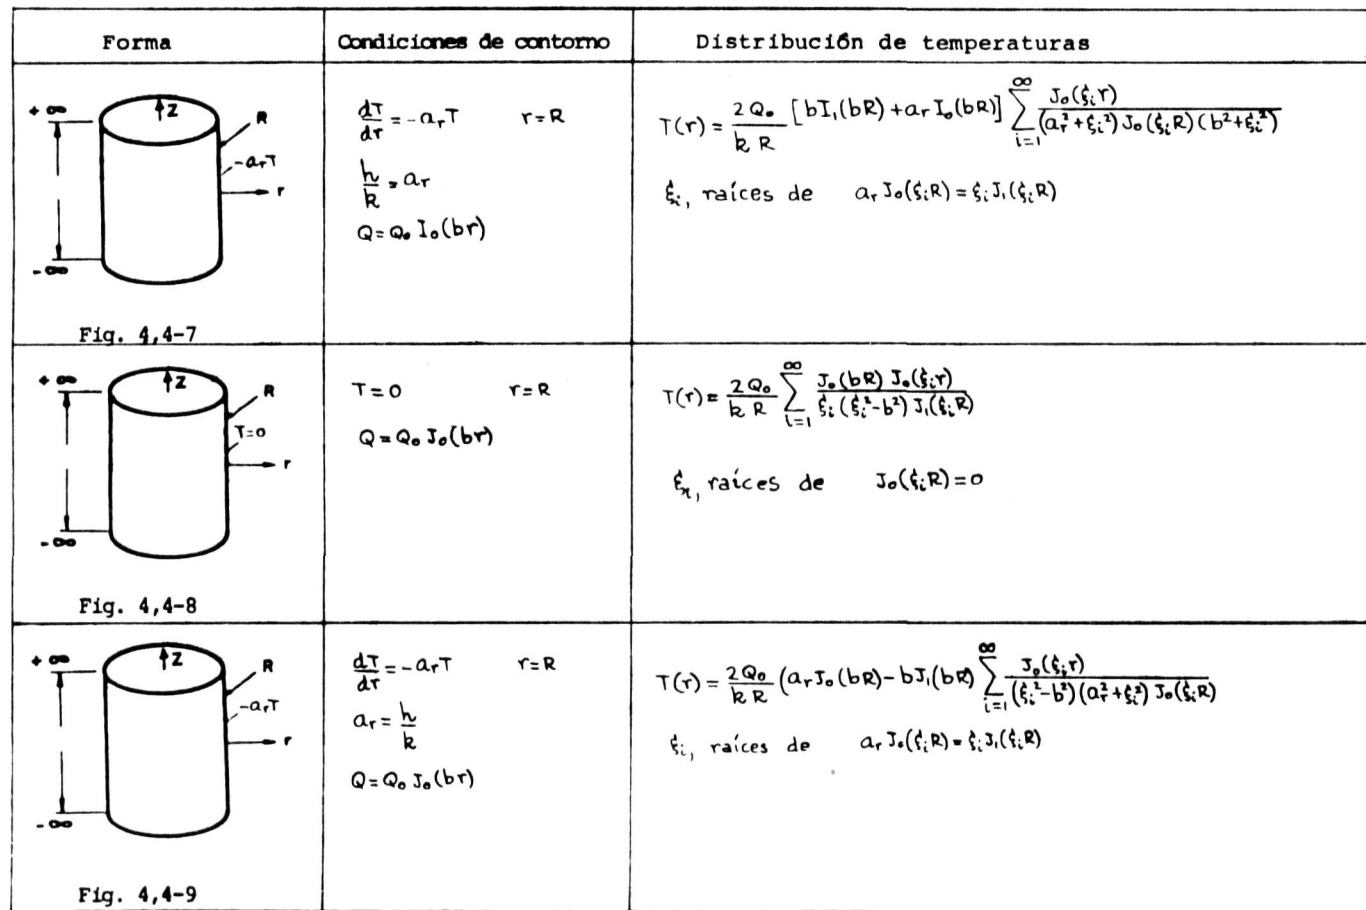 Forma
Condiciones de contorno
Distribución de temperaturas
+ ∞
z
R
-aᵣT
r
- ∞
Fig. 4,4-7
dT/dr = -aᵣT    r=R
h/k = aᵣ
Q = Q₀ I₀(br)
T(r) = 2Q₀/(k R) [bI₁(bR) + aᵣ I₀(bR)] ∑_{i=1}^{∞} J₀(ξᵢr) / ((aᵣ² + ξᵢ²) J₀(ξᵢR) (b² + ξᵢ²))
ξᵢ, raíces de    aᵣ J₀(ξᵢR) = ξᵢ J₁(ξᵢR)
+ ∞
z
R
T=0
r
- ∞
Fig. 4,4-8
T = 0    r=R
Q = Q₀ J₀(br)
T(r) = 2Q₀/(k R) ∑_{i=1}^{∞} J₀(bR) J₀(ξᵢr) / (ξᵢ (ξᵢ² - b²) J₁(ξᵢR))
ξₙ, raíces de    J₀(ξᵢR) = 0
+ ∞
z
R
-aᵣT
r
- ∞
Fig. 4,4-9
dT/dr = -aᵣT    r=R
aᵣ = h/k
Q = Q₀ J₀(br)
T(r) = 2Q₀/(k R) (aᵣ J₀(bR) - bJ₁(bR) ∑_{i=1}^{∞} J₀(ξᵢr) / ((ξᵢ² - b²) (aᵣ² + ξᵢ²) J₀(ξᵢR))
ξᵢ, raíces de    aᵣ J₀(ξᵢR) = ξᵢ J₁(ξᵢR)